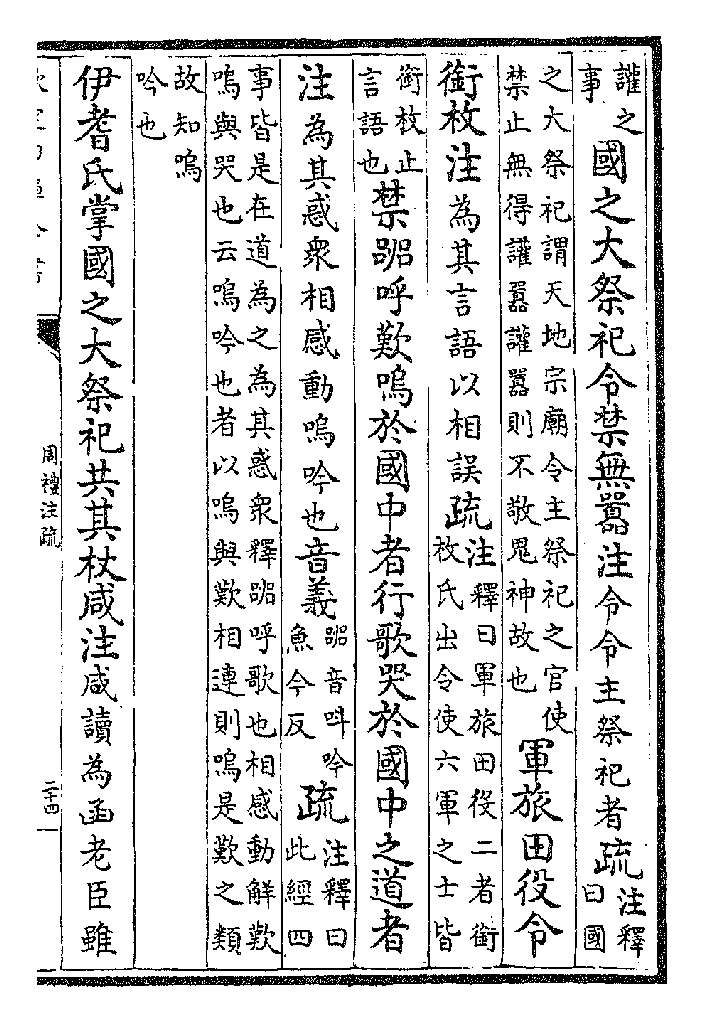 讙之事國之大祭祀令禁無嚻注令令主祭祀者疏注釋曰國
之大祭祀謂天地宗廟令主祭祀之官使禁止無得讙嚻讙嚻則不敬鬼神故也軍旅田役令
銜枚注為其言語以相誤疏注釋曰軍旅田役二者銜枚氏出令使六軍之士皆
銜枚止言語也禁嘂呼歎嗚於國中者行歌哭於國中之道者
注為其惑衆相感動嗚吟也音義嘂音叫吟魚今反疏注釋曰此經四
事皆是在道為之為其惑衆釋嘂呼歌也相感動解歎嗚與哭也云嗚吟也者以嗚與歎相連則嗚是歎之類
故知嗚吟也
伊耆氏掌國之大祭祀共其杖咸注咸讀為函老臣雖
周禮注疏
二十四